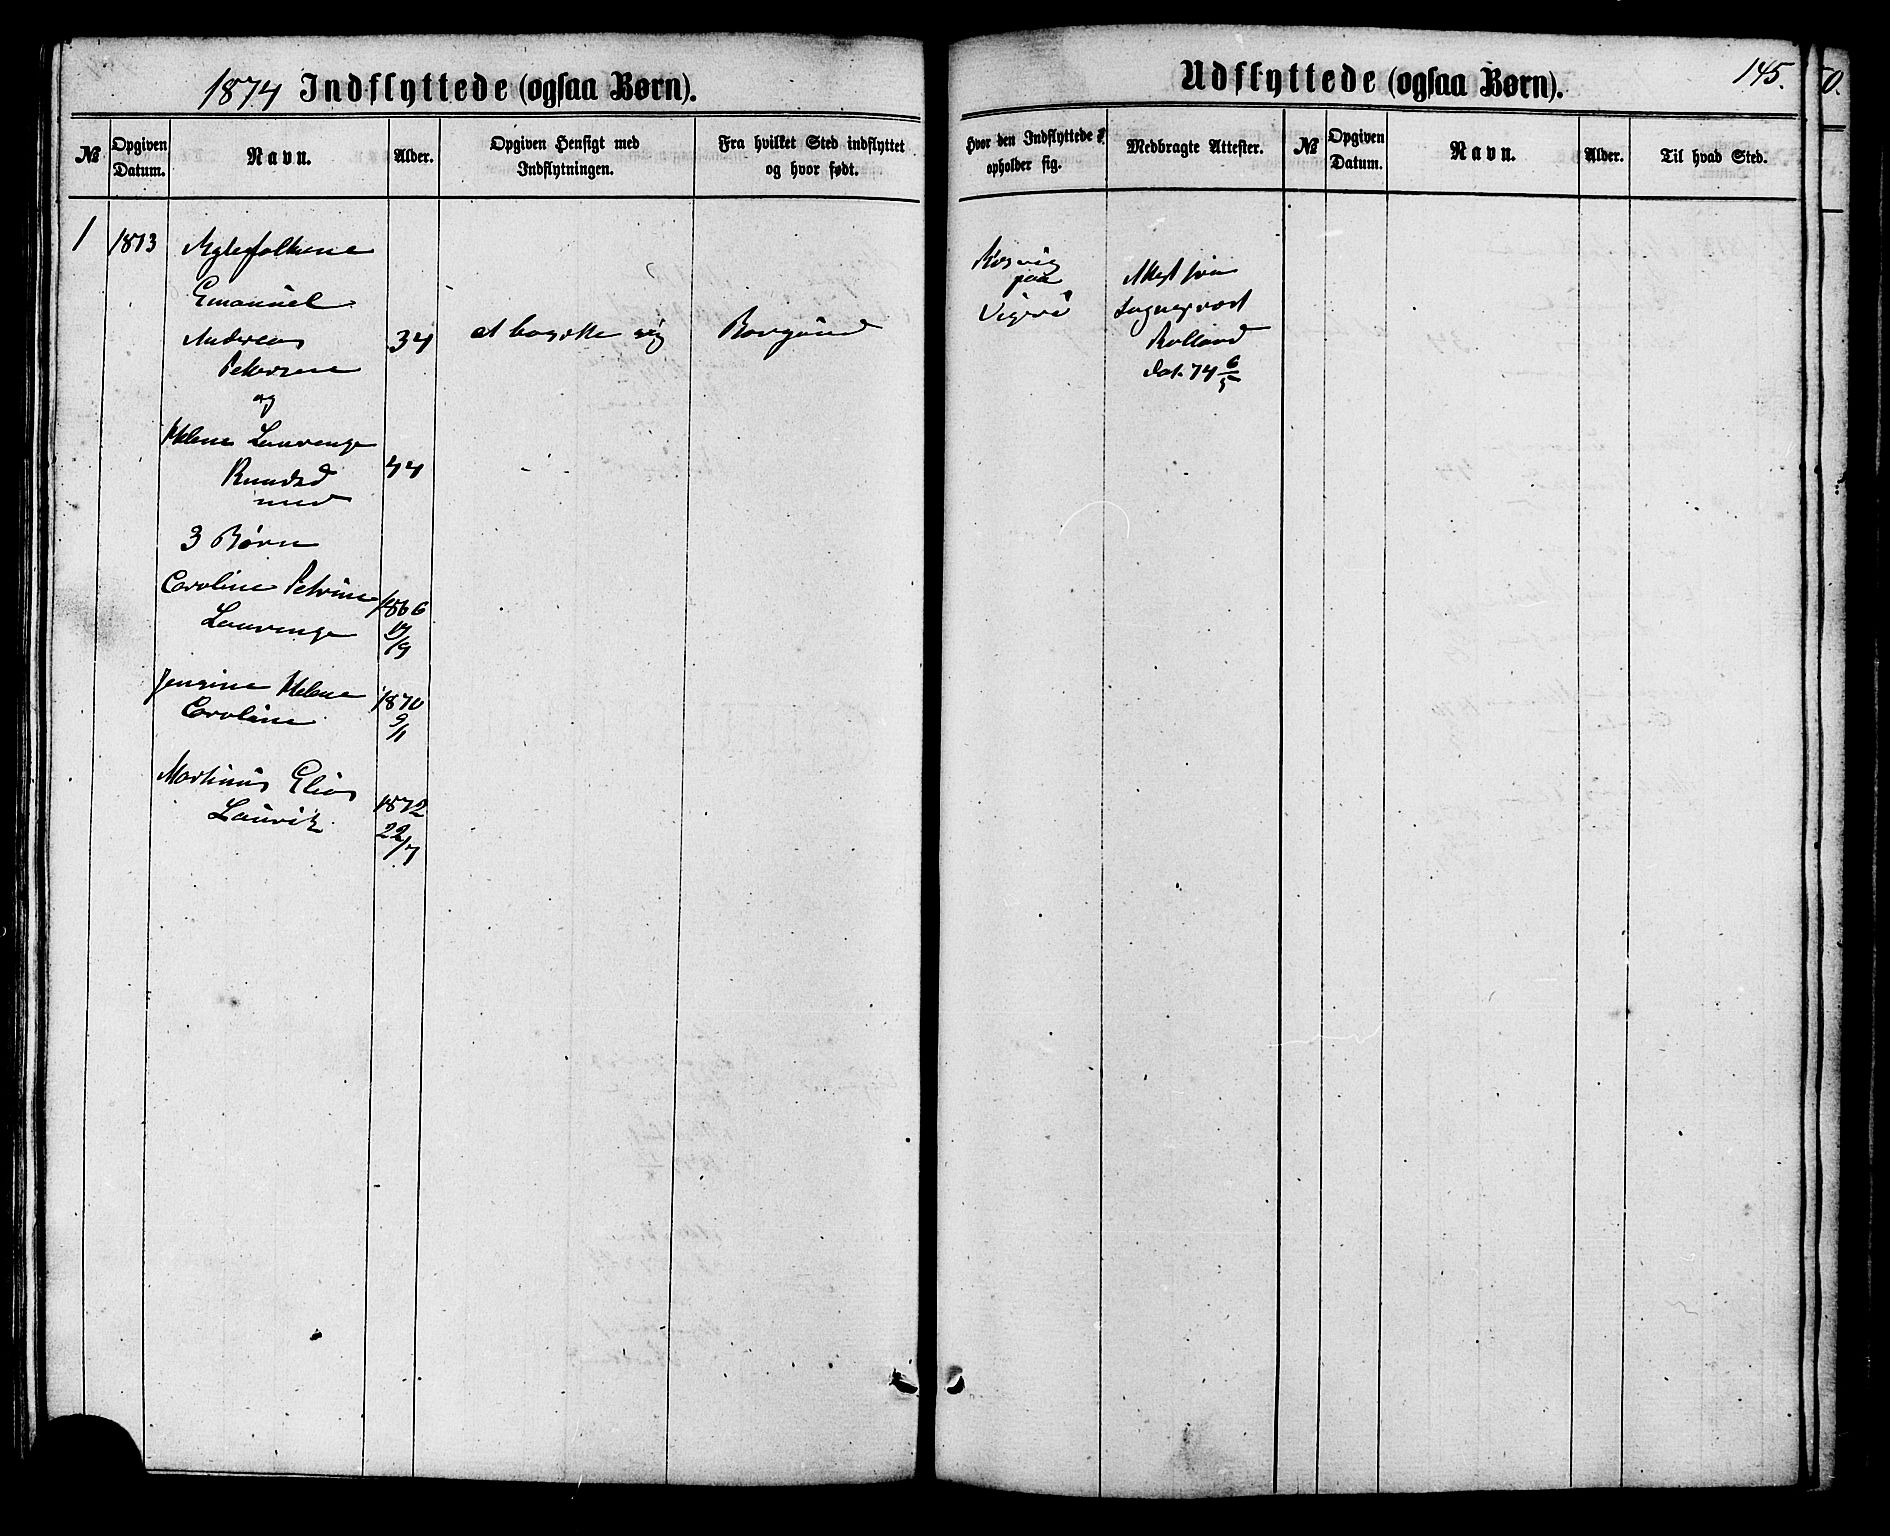 1874 Indflyttede (ogsaa Børn).
№
Opgiven Datum.
Navn.
Alder.
Opgiven Hensigt med Indflytningen.
Fra hvilket Sted indflyttet og hvor født.
1
1873
Ægtefolkene
Emanuel
Andreas
Petersen
34
at bosætte sig
Borgund
og
Helene Laurense
Knudsd
44
med
3 Børn
Caroline Petrine
Laurense
1866
17/9
Jensine Helene
Caroline
1870
9/1
Martinus Elias
Lauritz
1872
22/7
Udflyttede (ogsaa Børn).
145.
Hvor den Indflyttede opholder sig.
Medbragte Attester.
№
Opgiven Datum.
Navn.
Alder.
Til hvad Sted.
paa
Vigra
Attest fra
Sogneprest
Rolland
dat. 74 6/5
0.